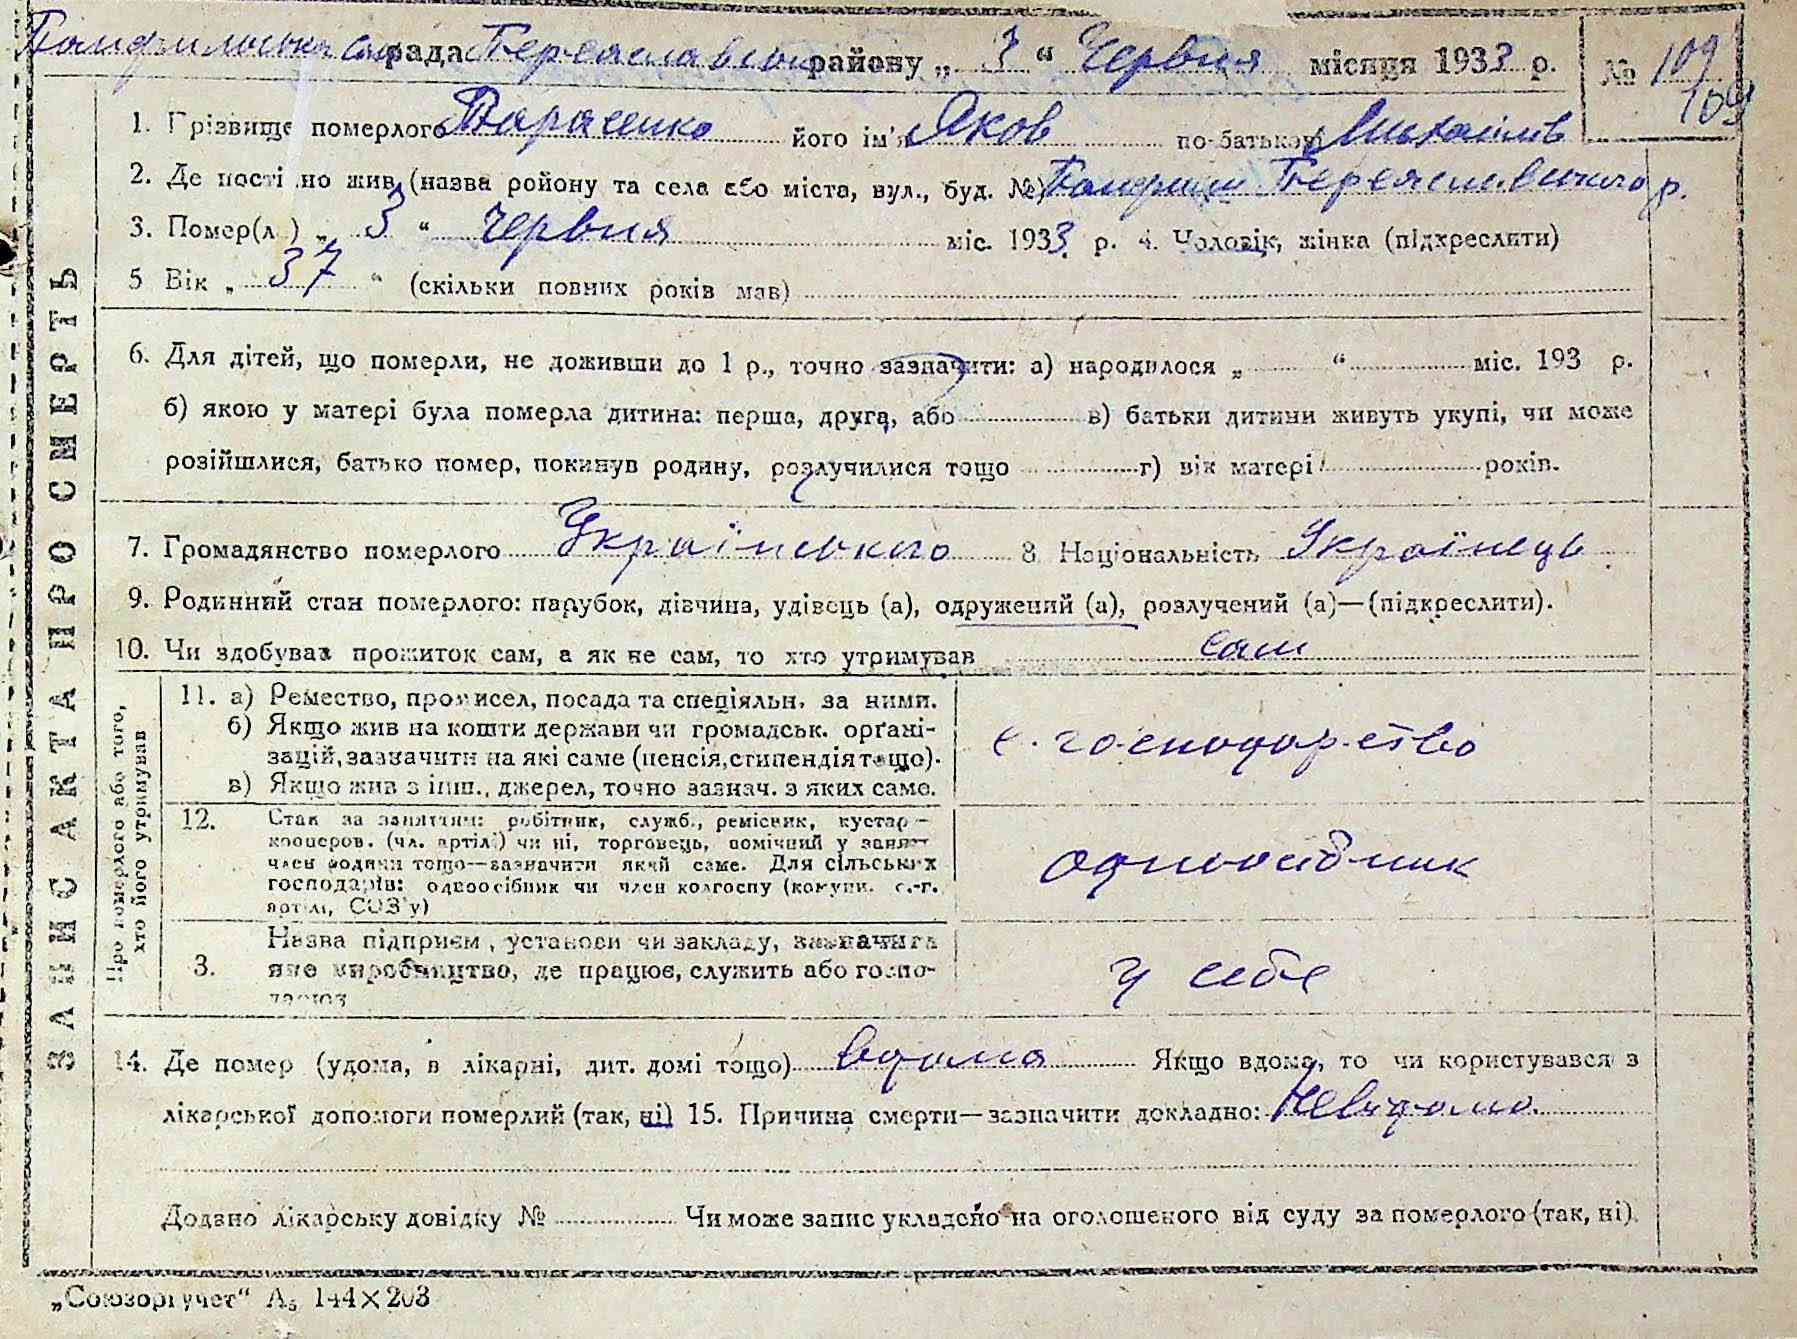 Панфильська сіл рада Переяславськ району „ 3 “ Червня місяця 1933 р. № 109
109
1. Прізвище померлого Тараненко його ім'я Яков по-батькові Михайлів
2. Де пості но жив (назва ройону та села або міста, вул., буд. №) Панфили Переяславського р.
3. Помер(л ) „ 3 “ Червня міс. 1933 р. 4. Чоловік, жінка (підкреслити)
5 Вік „ 37 “ (скільки повних років мав)
6. Для дітей, що померли, не доживши до 1 р., точно зазначити: а) народилося „ “ міс. 193 р.
б) якою у матері була померла дитина: перша, друга, або в) батьки дитини живуть укупі, чи може
розійшлися, батько помер, покинув родину, розлучилися тощо г) вік матері років.
7. Громадянство померлого Українського 8 Національність Українець
9. Родинний стан померлого: парубок, дівчина, удівець (а), одружений (а), розлучений (а)—(підкреслити).
10. Чи здобував прожиток сам, а як не сам, то хто утримував сам
ЗАПИС АКТА ПРО СМЕРТЬ
Про померлого або того,
хто його утримував
11. а) Ремество, промисел, посада та спеціяльн. за ними.
б) Якщо жив на кошти держави чи громадськ. орґані-
зацій, зазначити на які саме (пенсія, стипендія тощо).
в) Якщо жив з інш., джерел, точно зазнач. з яких саме.
с. господарство
12. Стан за заняттям: робітник, служб., ремісник, кустар—
кооперов. (чл. артілі) чи ні, торговець, помічний у занят
член родини тощо—зазначити який саме. Для сільських
господарів: одноосібник чи член колгоспу (комуни. с.-г.
артілі, СОЗ'у)
одноосібник
Назва підприєм , установи чи закладу, зазначити
3. яке виробництво, де працює, служить або госпо-
дарює
У себе
14. Де помер (удома, в лікарні, дит. домі тощо) вдома Якщо вдома, то чи користувався з
лікарської допомоги померлий (так, ні) 15. Причина смерти—зазначити докладно: Невідомо.
Додано лікарську довідку № Чи може запис укладено на оголошеного від суду за померлого (так, ні).
„Союзоргучет“ А5 144×203